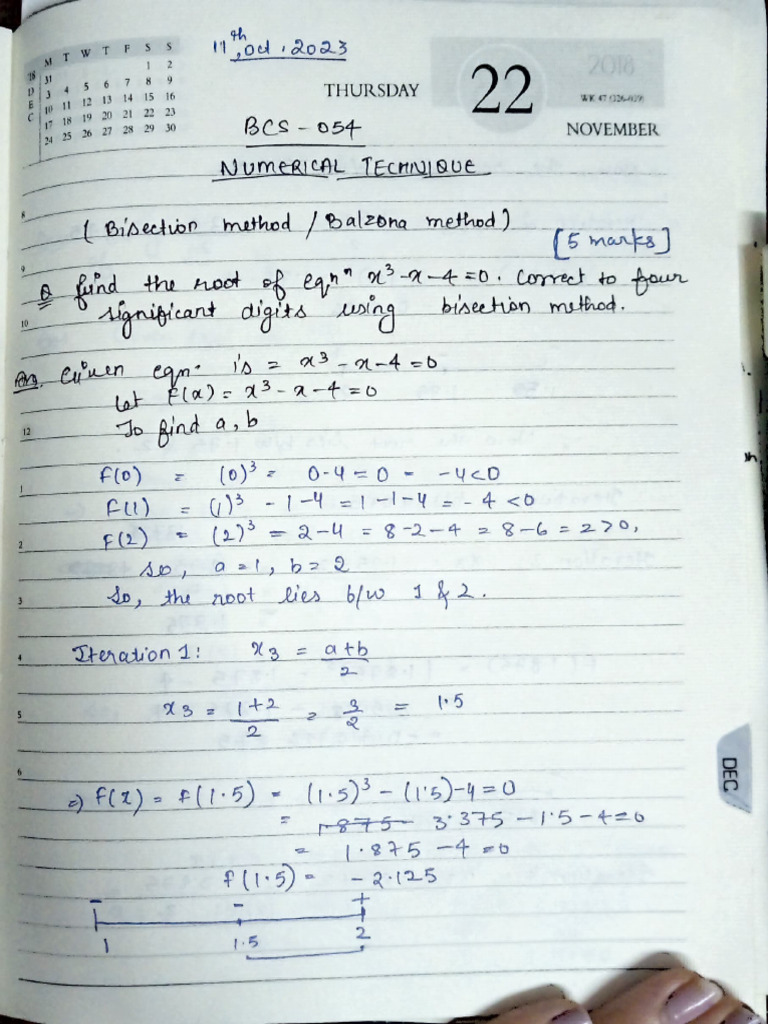 M T W T F S S
1 2
31
3 4 5 6 7 8 9
10 11 12 13 14 15 16
17 18 19 20 21 22 23
24 25 26 27 28 29 30
DEC
11th, Oct, 2023
THURSDAY
22
2018
NOVEMBER
BCS - 054
NUMERICAL TECHNIQUE
8
( Bisection method / Balzona method )
[5 marks]
9
Q find the root of eqnⁿ x³-x-4=0. Correct to four
10
significant digits using bisection method.
Ans. Given eqn. is = x³ - x - 4 = 0
Let F(x) = x³ - x - 4 = 0
12
To find a, b
1
F(0) = (0)³ = 0-4 = 0 - -4<0
F(1) = (1)³ - 1-4 = 1-1-4 = -4 <0
2
F(2) = (2)³ = 2-4 = 8-2-4 = 8-6 = 2>0,
so, a=1, b=2
3
So, the root lies b/w 1 & 2.
4
Iteration 1: x3 = a+b/2
5
x3 = 1+2/2 = 3/2 = 1.5
6
=) f(x) = f(1.5) = (1.5)³ - (1.5)-4=0
= 1.875 3.375 - 1.5 - 4=0
= 1.875 - 4 =0
f(1.5) = - 2.125
- - +
1 1.5 2
DEC